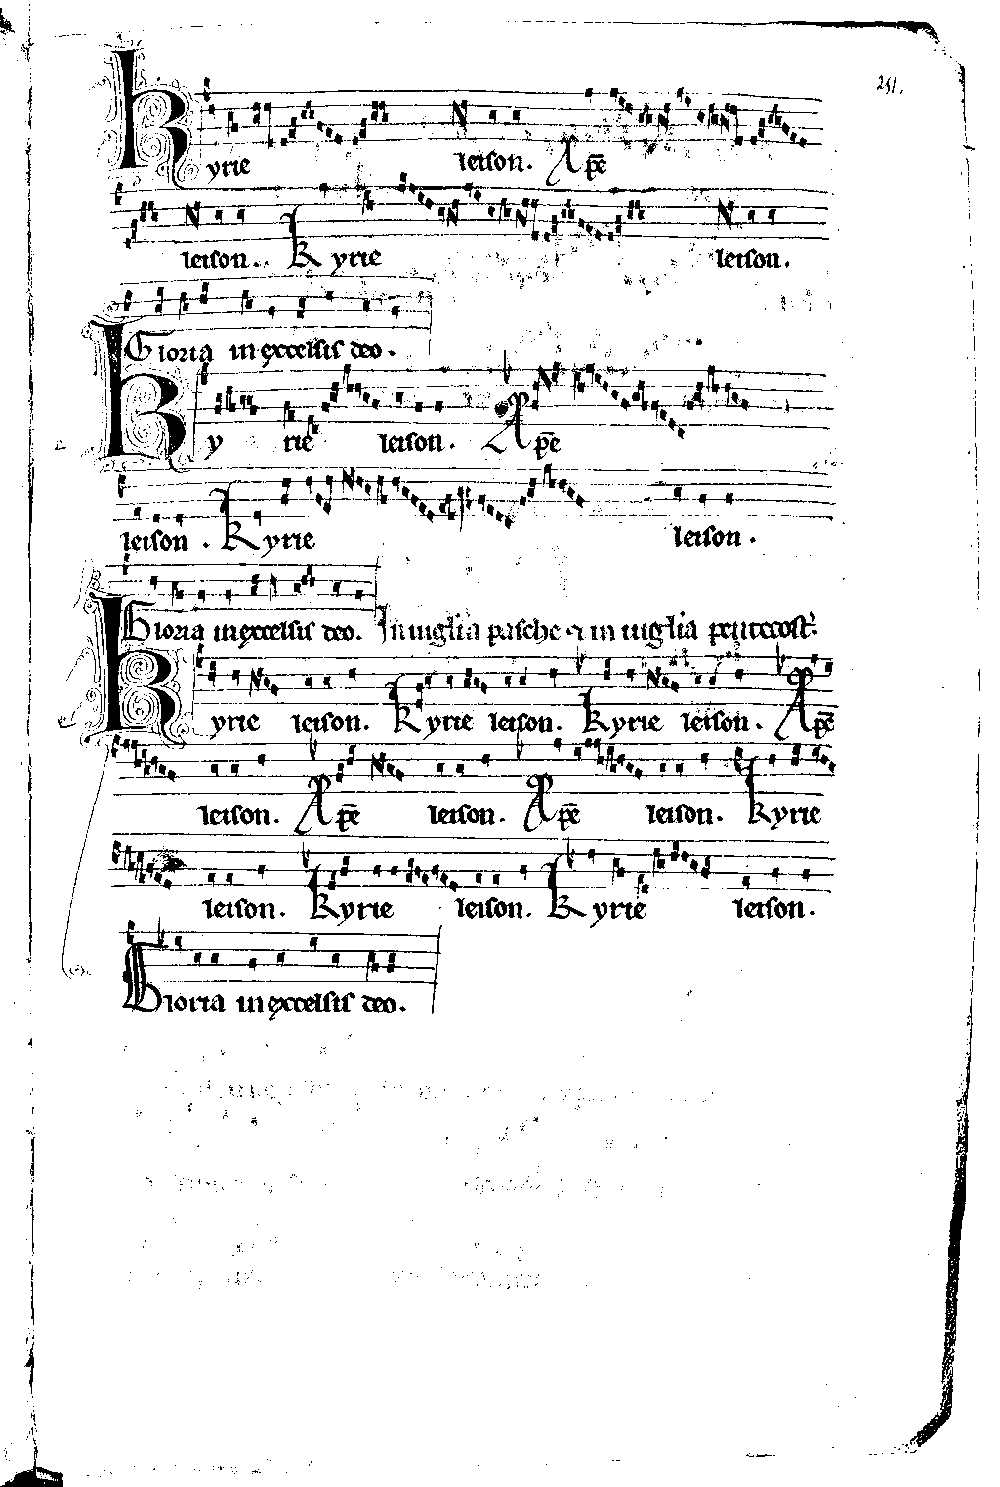 251.
Kyrie leison. Xp̄e
leison. Kyrie leison.
Gloria in excelsis deo.
Ky rie leison. Xp̄e
leison. Kyrie leison.
Gloria in excelsis deo. In uigilia pasche & in uigilia pentecost.
Kyrie leison. Kyrie leison. Kyrie leison. Xp̄e
leison. Xp̄e leison. Xp̄e leison. Kyrie
leison. Kyrie leison. Kyrie leison.
Gloria in excelsis deo.